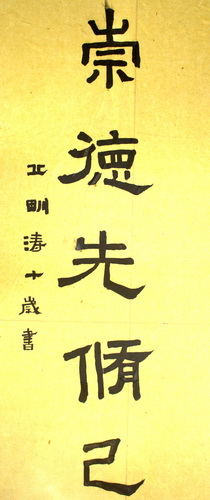 崇德先脩己
北剛濤十歲書